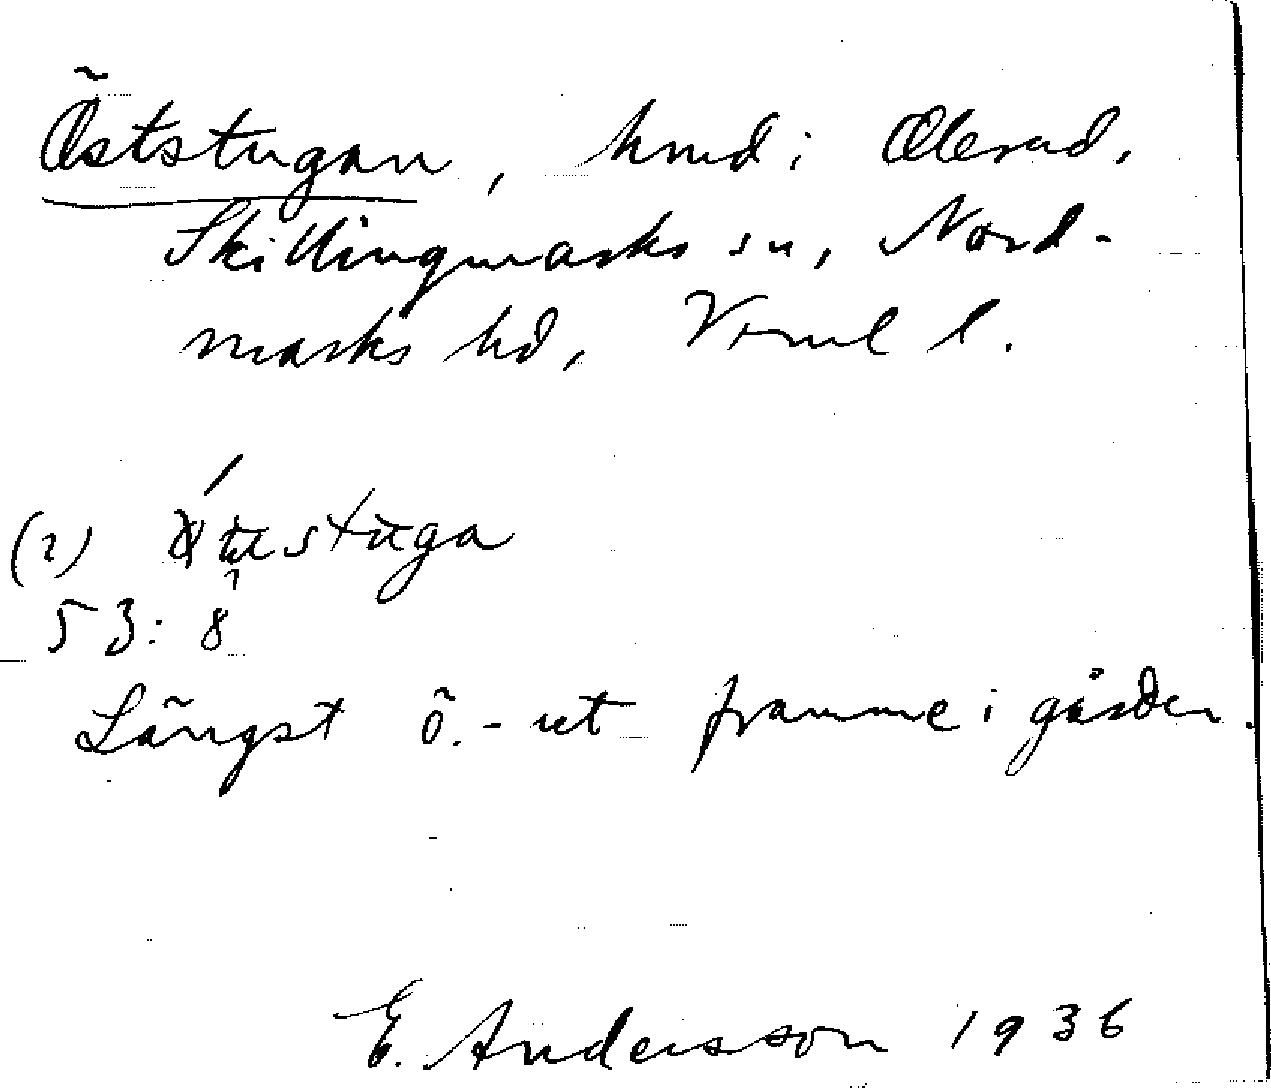 Öststugan, hmd i Olerud,
Skillingmarks sn, Nord-
marks hd, Verml l.
(2)
53:8
Längst ö.-ut framme i gården.
E. Andersson 1936